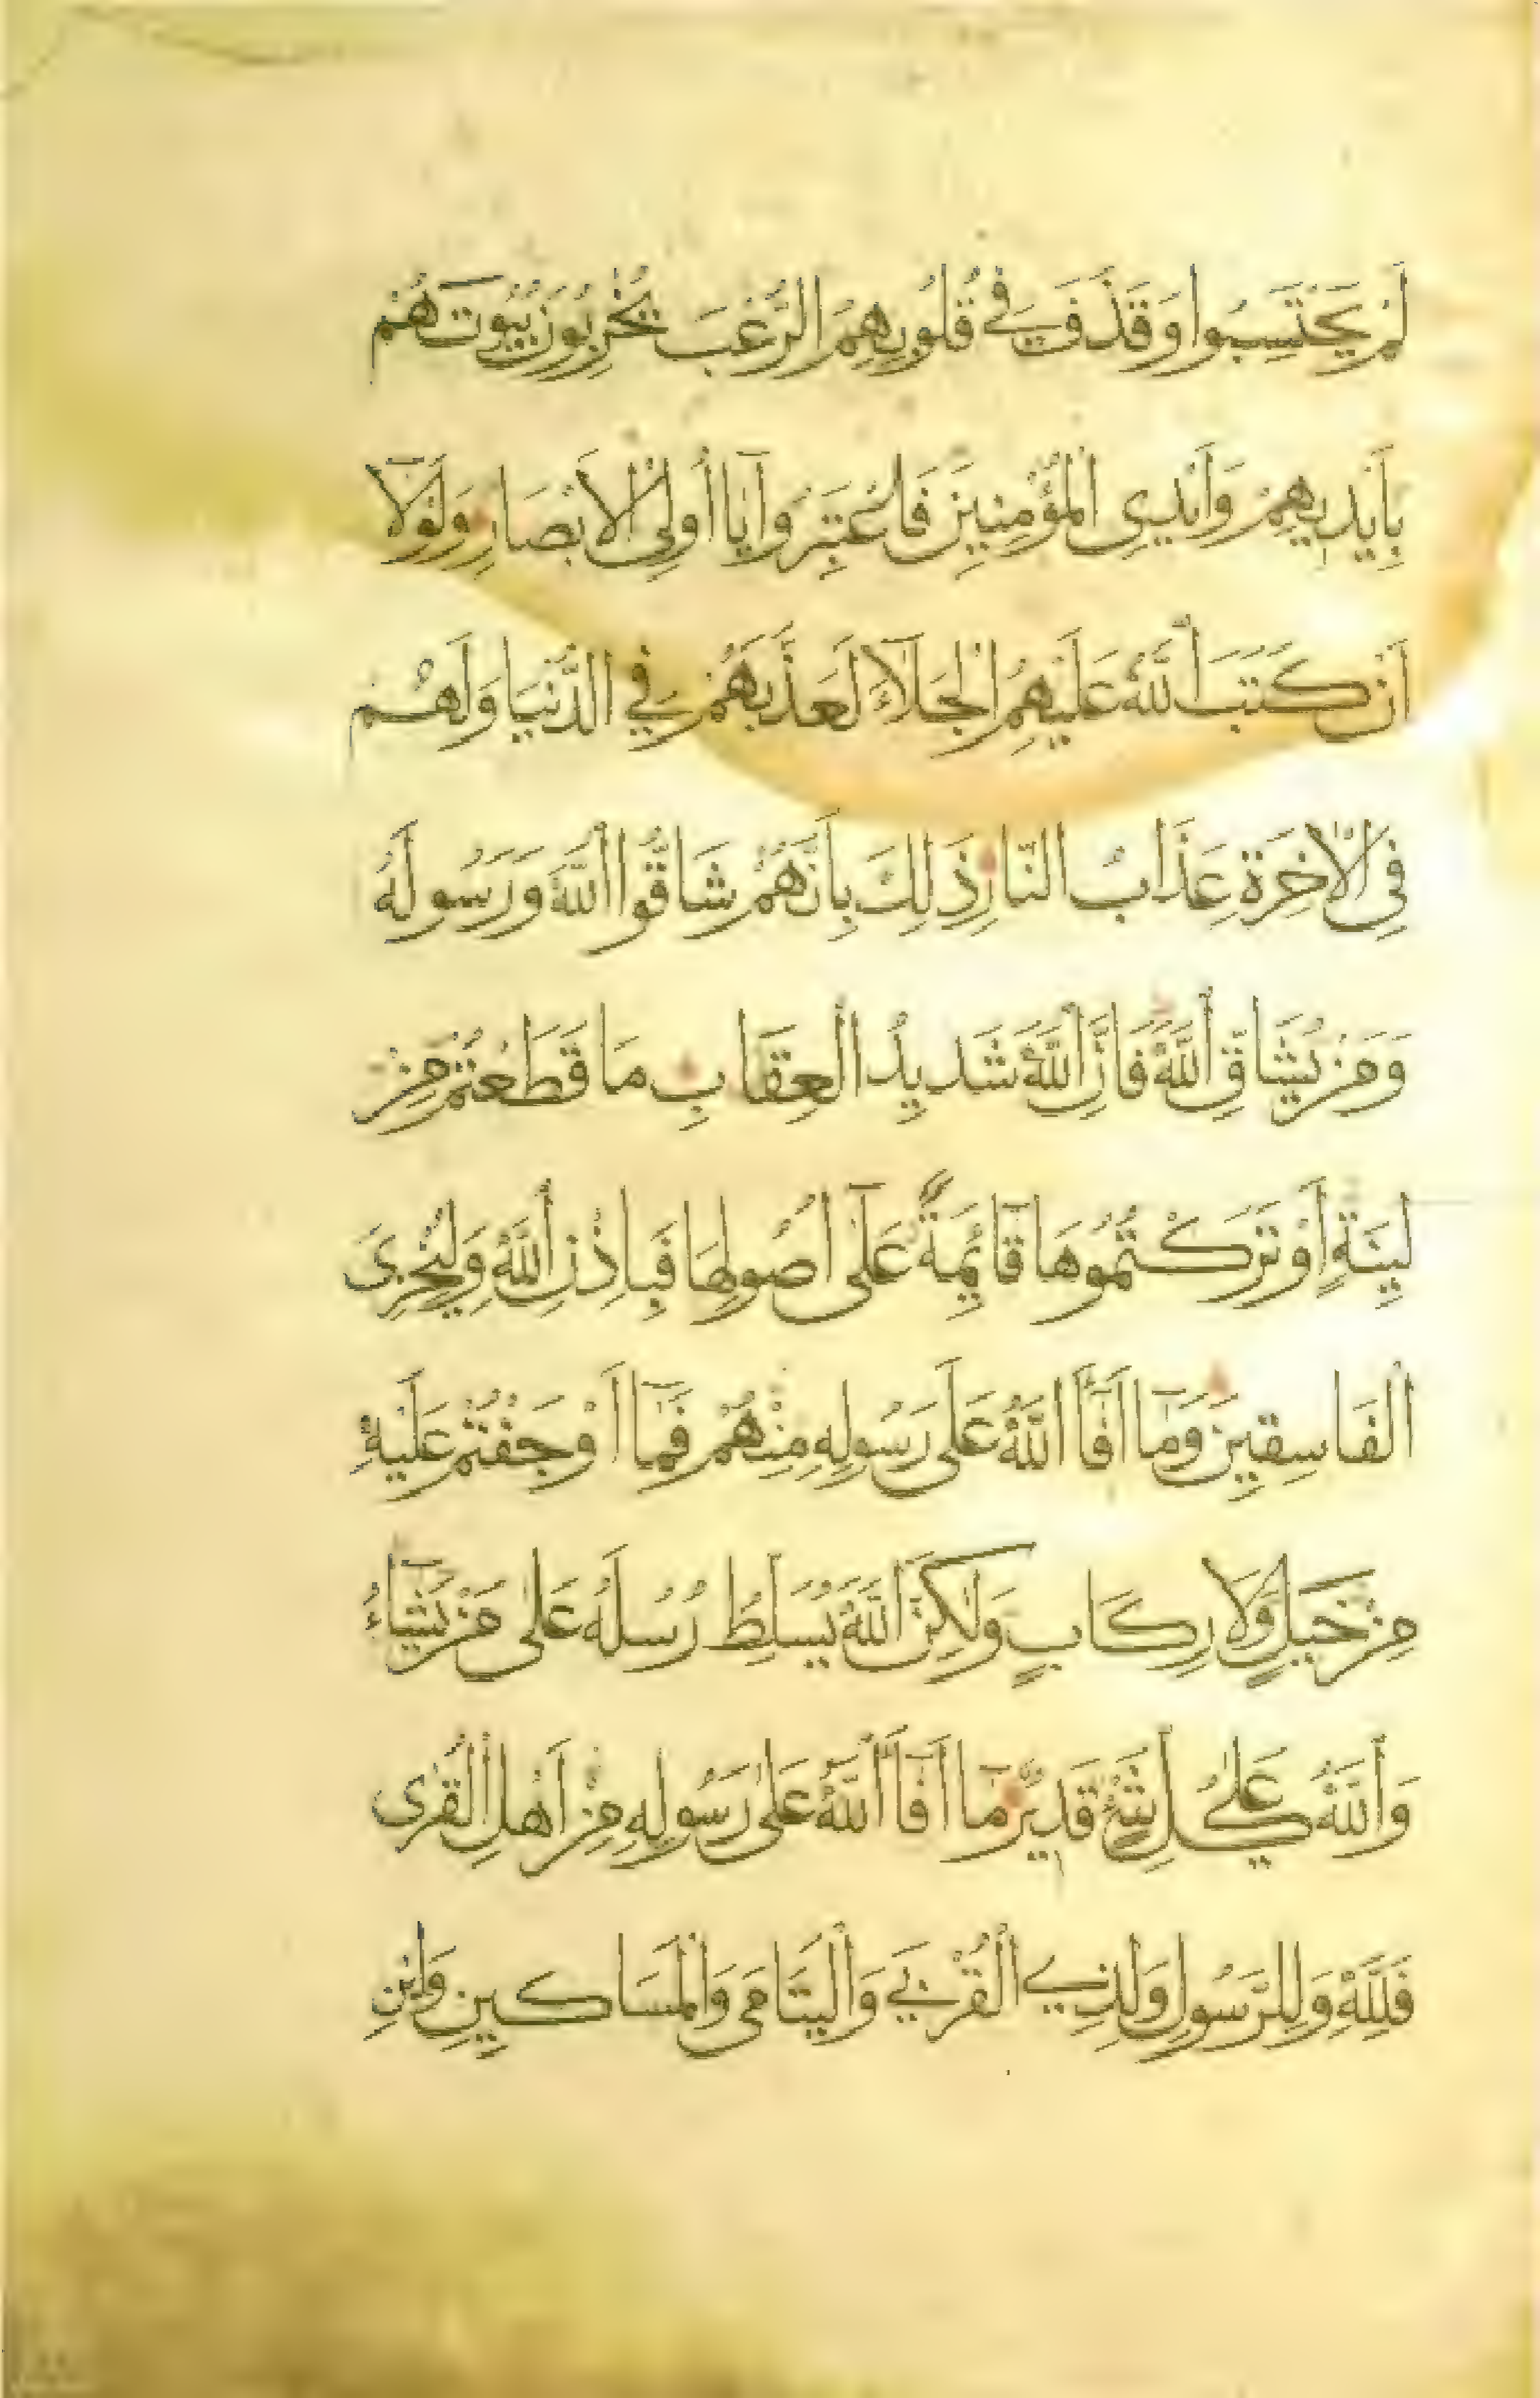 لَمْ يَحْتَسِبُوا وَقَذَفَ فِي قُلُوبِهِمُ الرُّعْبَ يُخْرِبُونَ بُيُوتَهُمْ
بِأَيْدِيهِمْ وَأَيْدِي الْمُؤْمِنِينَ فَاعْتَبِرُوا يَا أُولِي الْأَبْصَارِ وَلَوْلَا
أَنْ كَتَبَ اللَّهُ عَلَيْهِمُ الْجَلَاءَ لَعَذَّبَهُمْ فِي الدُّنْيَا وَلَهُمْ
فِي الْآخِرَةِ عَذَابُ النَّارِ ذَلِكَ بِأَنَّهُمْ شَاقُّوا اللَّهَ وَرَسُولَهُ
وَمَنْ يُشَاقِّ اللَّهَ فَإِنَّ اللَّهَ شَدِيدُ الْعِقَابِ مَا قَطَعْتُمْ مِنْ
لِينَةٍ أَوْ تَرَكْتُمُوهَا قَائِمَةً عَلَى أُصُولِهَا فَبِإِذْنِ اللَّهِ وَلِيُخْزِيَ
الْفَاسِقِينَ وَمَا أَفَاءَ اللَّهُ عَلَى رَسُولِهِ مِنْهُمْ فَمَا أَوْجَفْتُمْ عَلَيْهِ
مِنْ خَيْلٍ وَلَا رِكَابٍ وَلَكِنَّ اللَّهَ يُسَلِّطُ رُسُلَهُ عَلَى مَنْ يَشَاءُ
وَاللَّهُ عَلَى كُلِّ شَيْءٍ قَدِيرٌ مَا أَفَاءَ اللَّهُ عَلَى رَسُولِهِ مِنْ أَهْلِ الْقُرَى
فَلِلَّهِ وَلِلرَّسُولِ وَلِذِي الْقُرْبَى وَالْيَتَامَى وَالْمَسَاكِينِ وَابْنِ